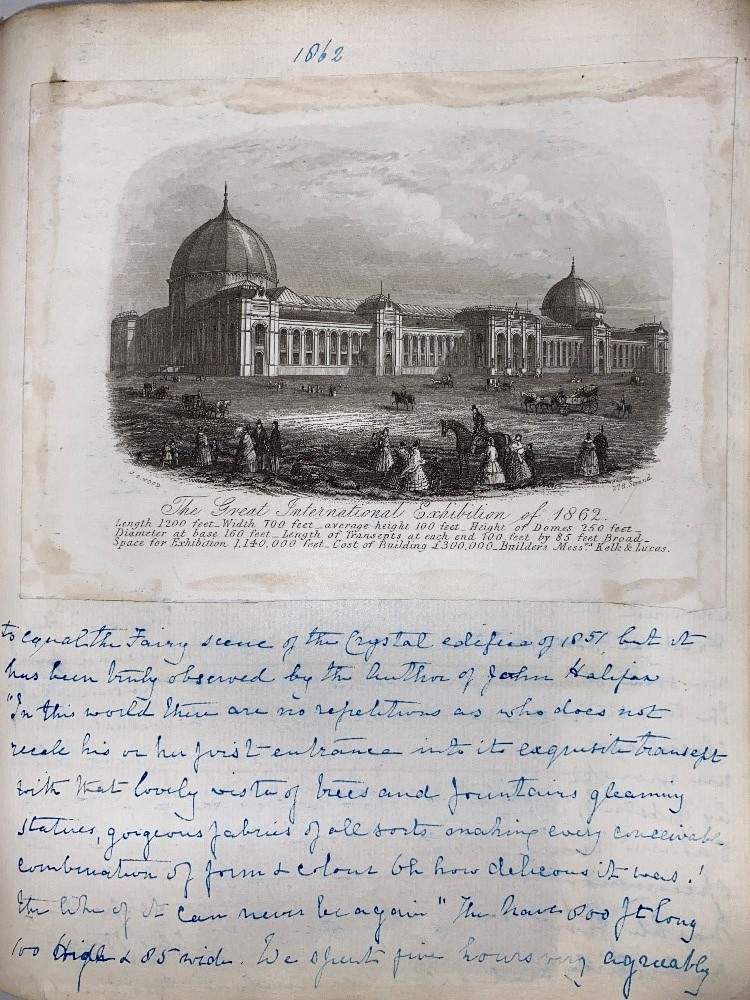 1862
J. & WOOD
278, Strand
The Great International Exhibition of 1862.
Length 1200 feet_Width 700 feet_average height 100 feet_Height of Domes 250 feet_
Diameter at base 160 feet_Length of Transepts at each end 700 feet by 85 feet Broad_
Space for Exhibition 1,140,000 feet_Cost of Building £300,000_Builders Messrs Kelk & Lucas.
to equal the Fairy scene of the Crystal edifice of 1851 but it
has been truly observed by the Author of John Halifax
"In this world there are no repetitions as who does not
recale his or her first entrance into its exquisite transept
with that lovely vista of trees and fountains gleaming
statues, gorgeous fabrics of all sorts making every conceivable
combination of form & colour Oh how delicous it was.!
the like of it can never be again" The Nave 800 ft long
100 High & 85 wide. We spent five hours very agreeably